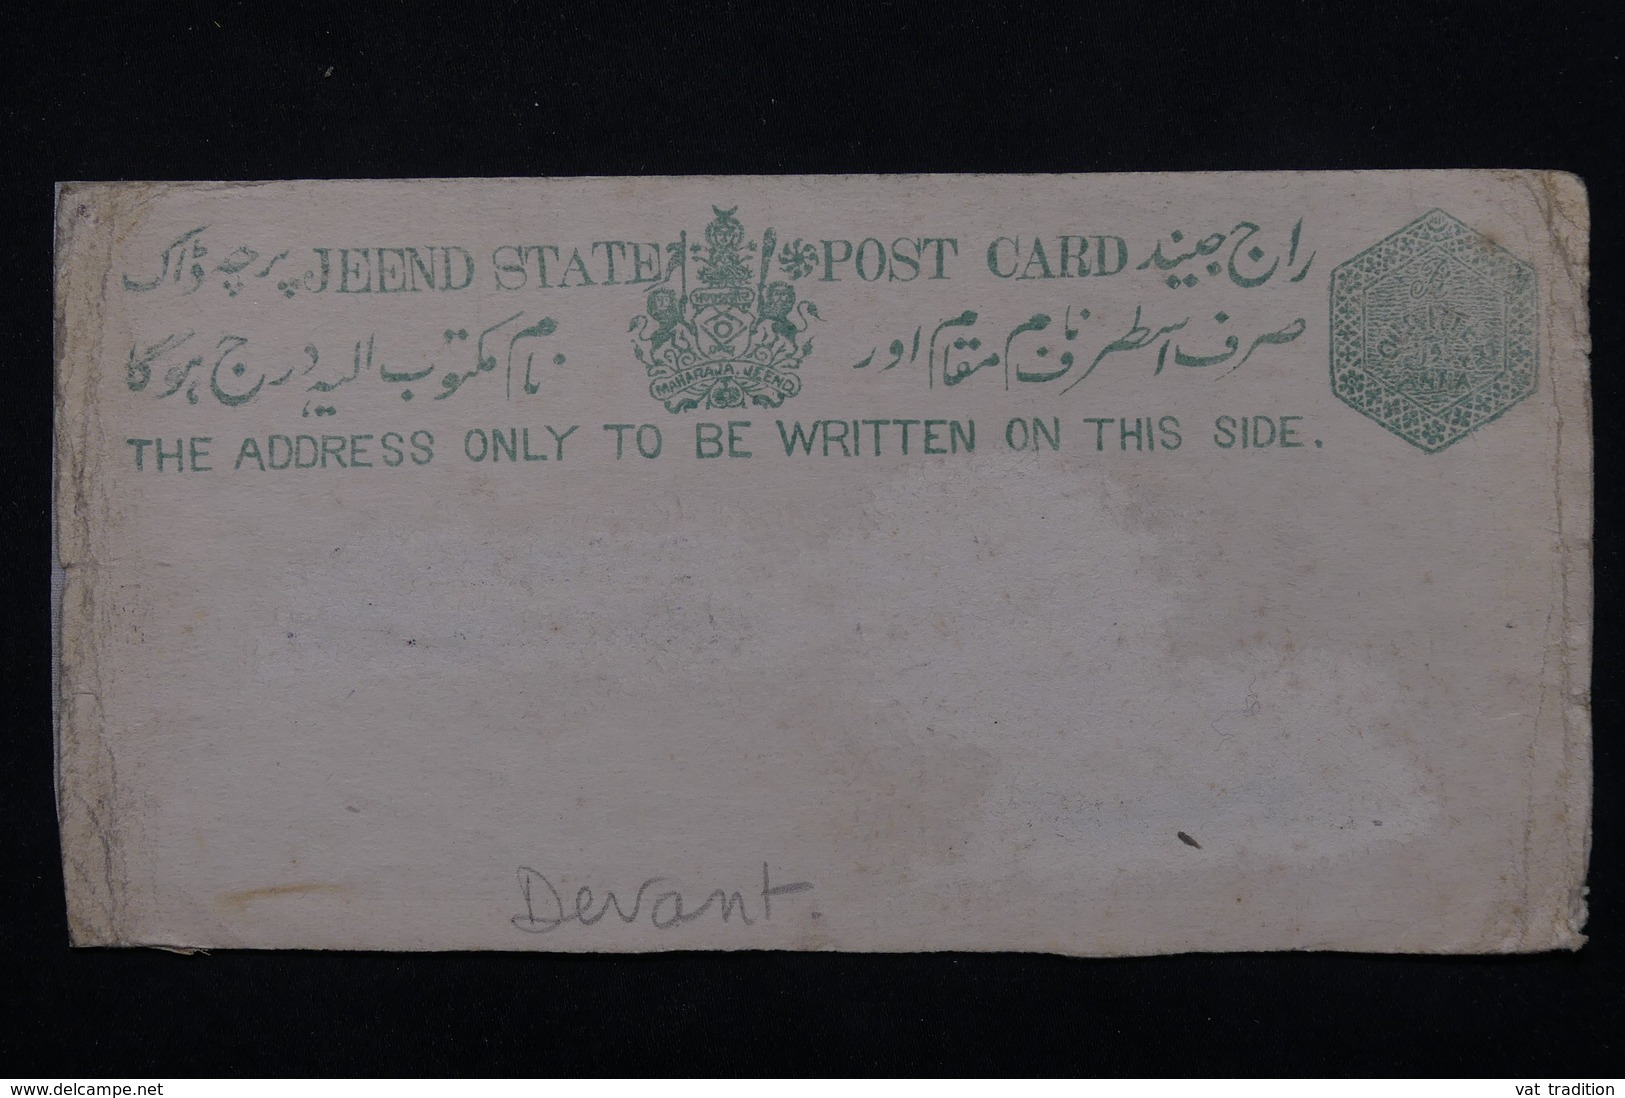 پرچہ ڈاک JEEND STATE POST CARD راج جیند
صرف اسطرف نام مقام اور نام مکتوب الیہ درج ہوگا
MAHARAJA. JEEND
ANNA
THE ADDRESS ONLY TO BE WRITTEN ON THIS SIDE.
Devant.
www.delcampe.net
vat tradition